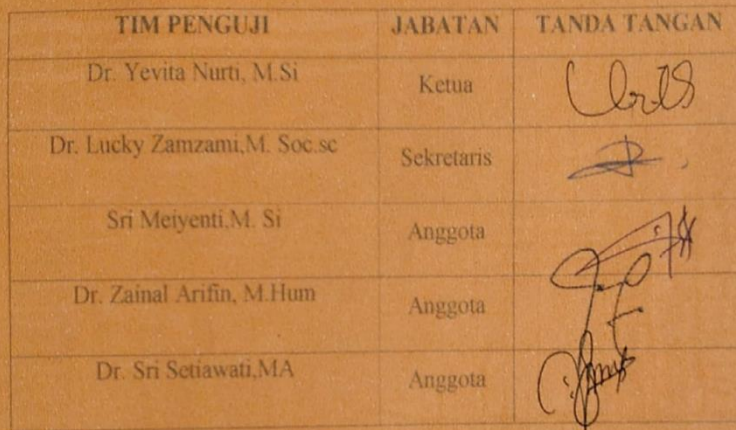 TIM PENGUJI JABATAN TANDA TANGAN
Dr. Yevita Nurti, M.Si Ketua
Dr. Lucky Zamzami,M. Soc.sc Sekretaris
Sri Meiyenti,M. Si Anggota
Dr. Zainal Arifin, M.Hum Anggota
Dr. Sri Setiawati,MA Anggota